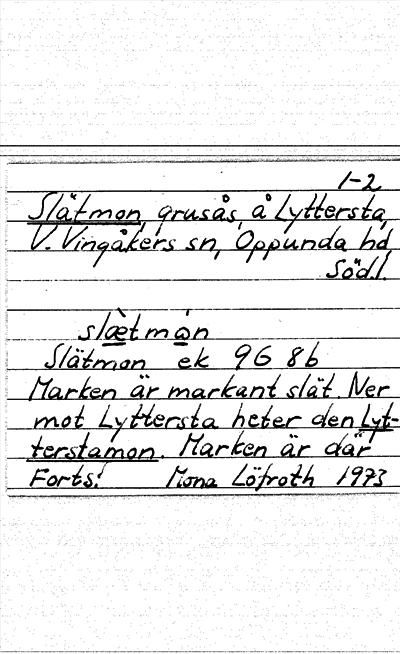 1-2
Slätmon, grusås, å Lyttersta,
V. Vingåkers sn, Oppunda hd,
Södl.
slæ̀tmòn
Slätmon ek 9G 8b
Marken är markant slät. Ner
mot Lyttersta heter den Lyt-
terstamon. Marken är där
Forts. Mona Löfroth 1973